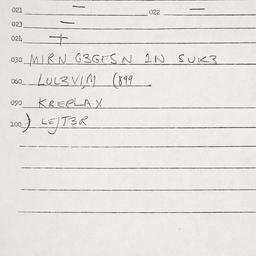 021 — 022 —
023 —
024 +
030 MIRN G3GESN IN SUK3
060 LUL3VI,M (899
090 KREPLA-X
100 ) LEJT3R